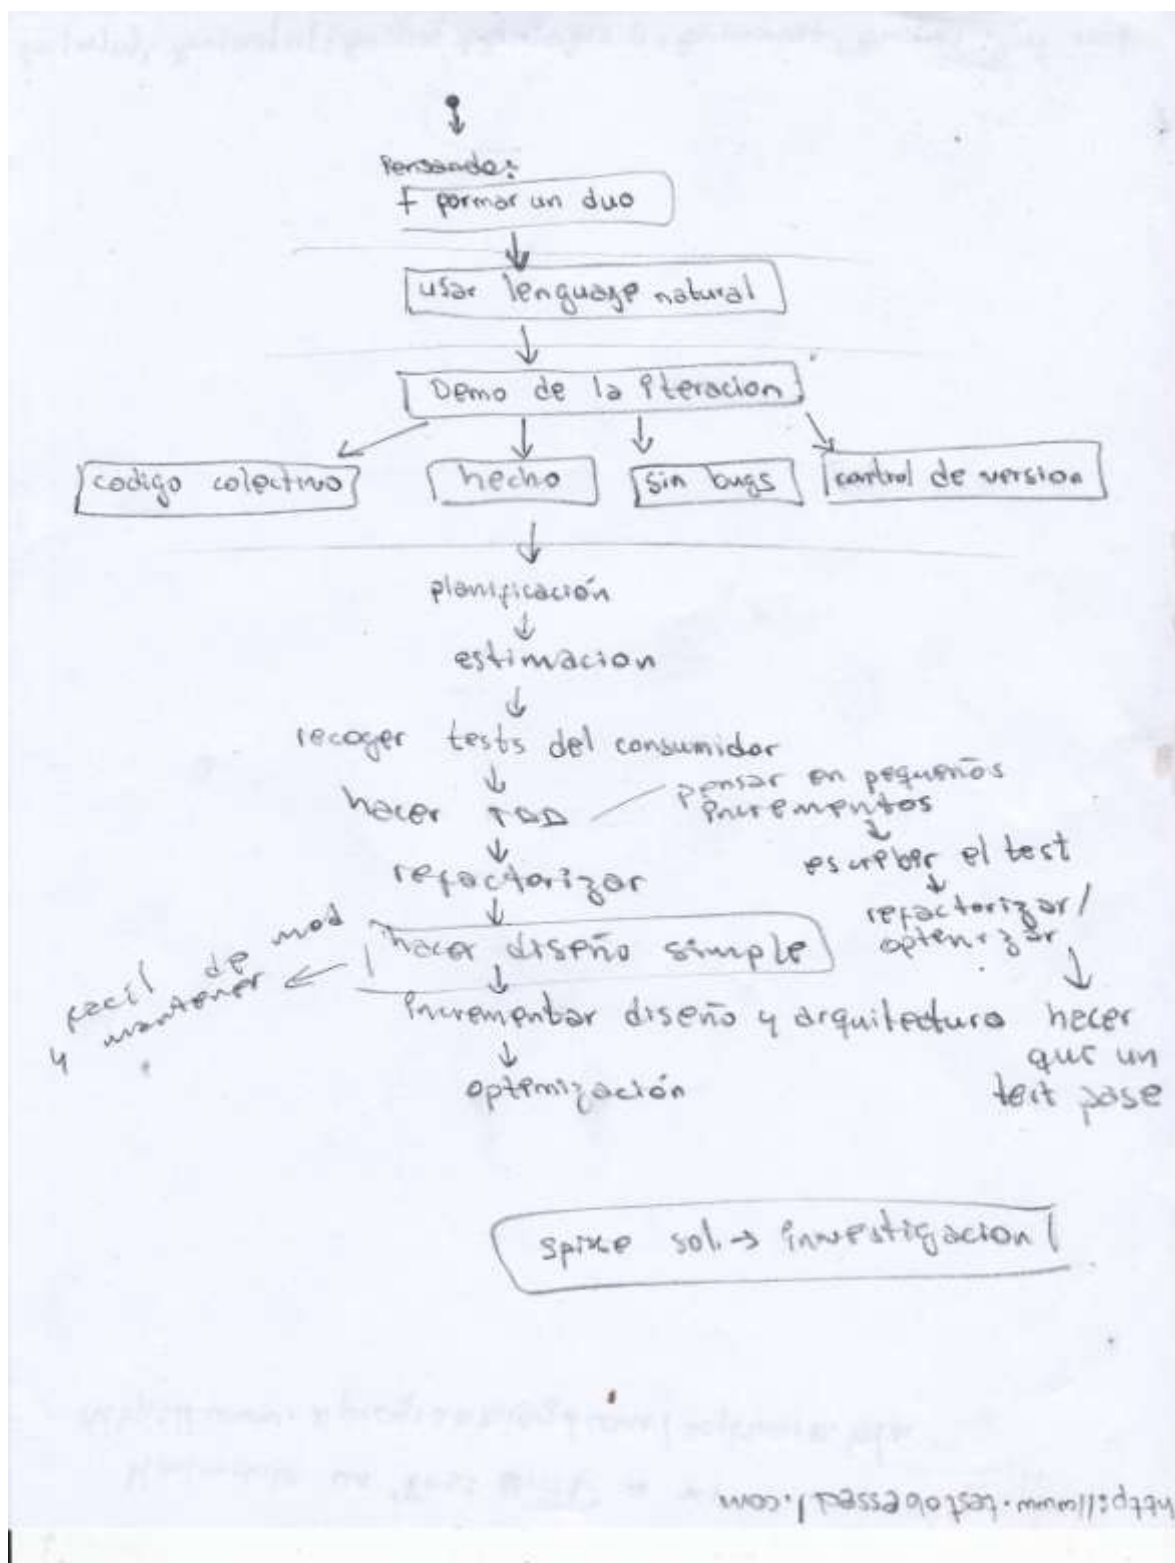 Pensando:
+ formar un duo
usar lenguaje natural
Demo de la iteracion
codigo colectivo
hecho
sin bugs
control de version
planificación
estimacion
recoger tests del consumidor
hacer TDD
pensar en pequeños
incrementos
escriber el test
refactorizar/
optimizar
hacer
que un
test pase
refactorizar
hacer diseño simple
facil de mod
y mantener
Incrementar diseño y arquitectura
optimización
spike sol. → investigacion
http://www.testobsessed.com